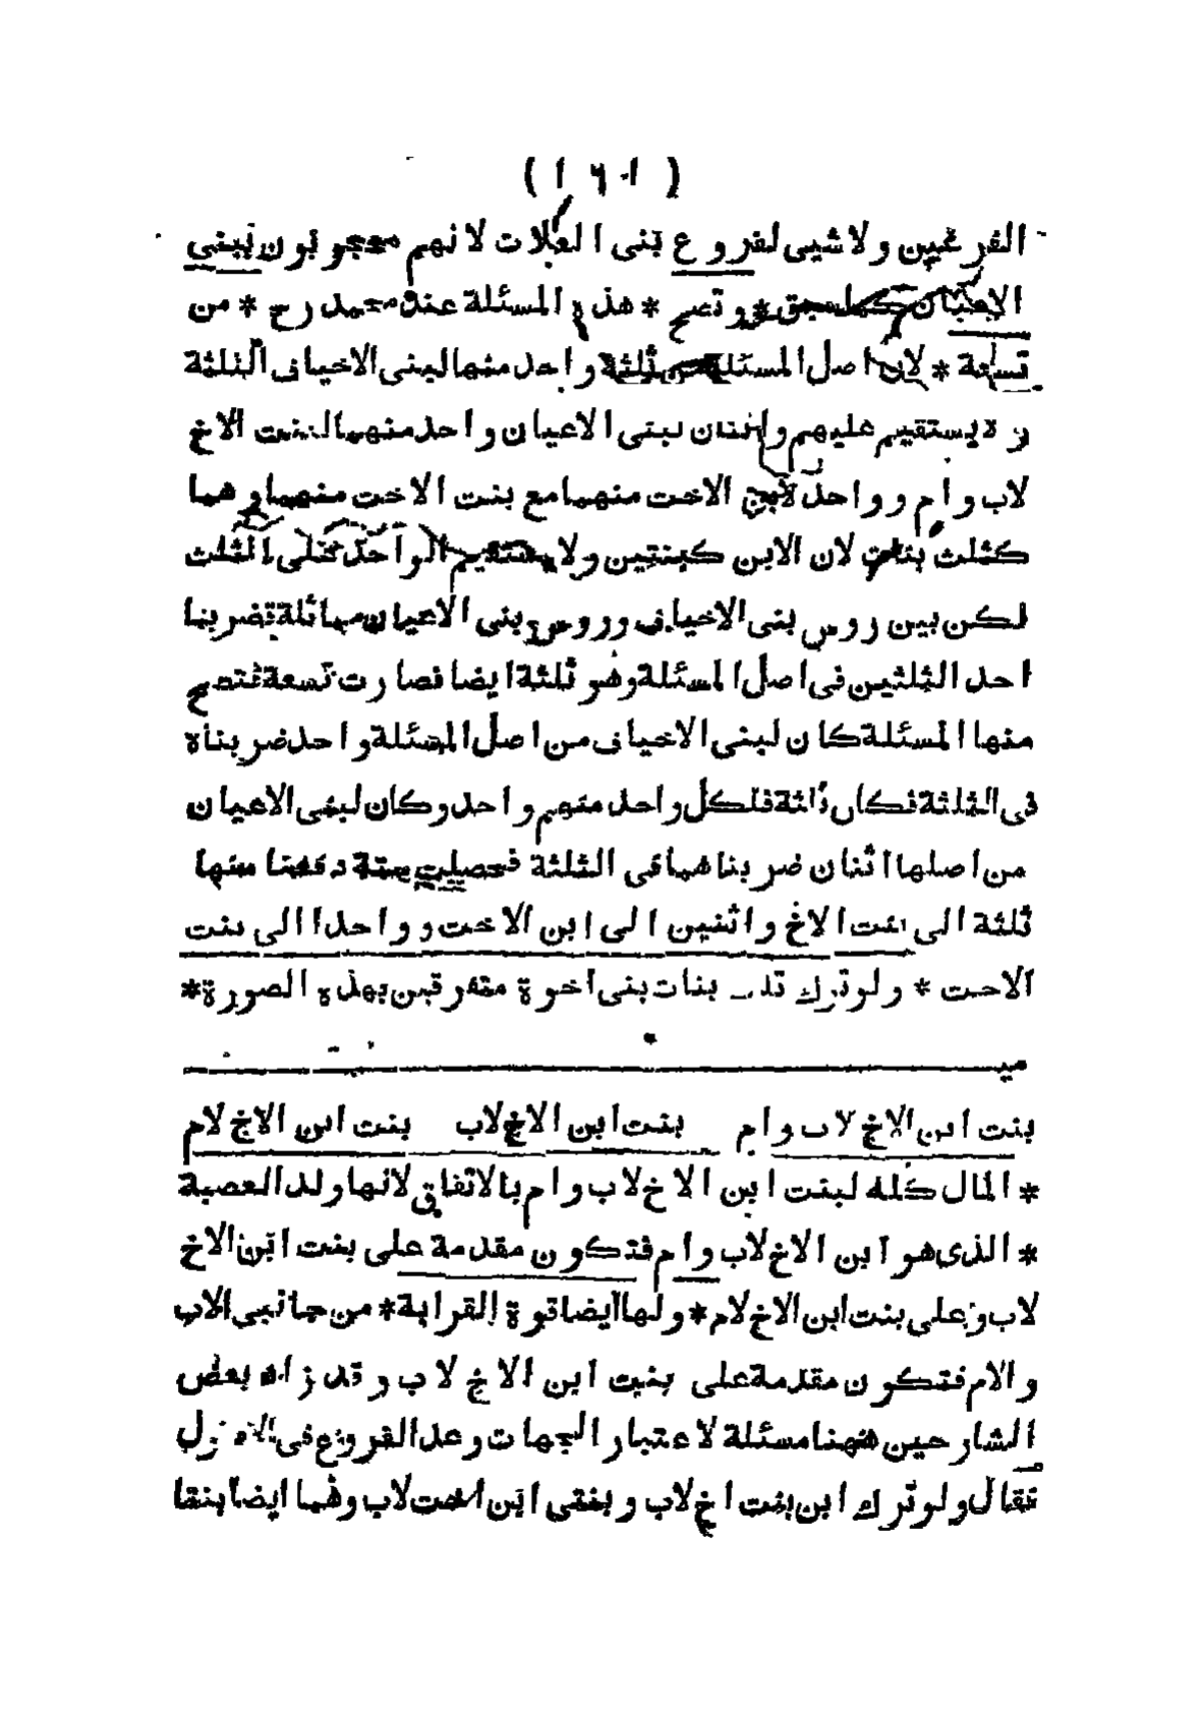 ( ١٦١ )
الفرعين ولا شيئ لفروع بنى العلات لانهم محجوبون ببنى
الاعيان كما سبق * وتصح * هذه المسئلة عند محمد رح * من
تسعة * لان اصل المسئلة ثلثة واحد منها لبنى الاخياف الثلثة
ولا يستقيم عليهم واثنان لبنى الاعيان واحد منهما لبنت الاخ
لاب وام وواحد لابن الاخت منهما مع بنت الاخت منهما وهما
كثلث بنات لان الابن كبنتين ولا يستقيم الواحد على الثلث
لكن بين روس بنى الاخياف وروس بنى الاعيان مماثلة فضربنا
احد الثلثين فى اصل المسئلة وهو ثلثة ايضا فصارت تسعة فتصح
منها المسئلة كان لبنى الاخياف من اصل المسئلة واحد ضربناه
فى الثلثة فكان ثلثة فلكل واحد منهم واحد وكان لبنى الاعيان
من اصلها اثنان ضربناهما فى الثلثة فحصلت ستة دفعنا منها
ثلثة الى بنت الاخ واثنين الى ابن الاخت وواحدا الى بنت
الاخت * ولو ترك بنات بنى اخوة متفرقين بهذه الصورة *
بنت ابن الاخ لاب وام بنت ابن الاخ لاب بنت ابن الاخ لام
* المال كله لبنت ابن الاخ لاب وام بالاتفاق لانها ولد العصبة
* الذى هو ابن الاخ لاب وام فتكون مقدمة على بنت ابن الاخ
لاب وعلى بنت ابن الاخ لام * ولها ايضا قوة القرابة * من جانبى الاب
والام فتكون مقدمة على بنت ابن الاخ لاب وقد زاد بعض
الشارحين ههنا مسئلة لاعتبار الجهات وعد الفروع فى
فقال ولو ترك ابن بنت اخ لاب وبنتى ابن اخت لاب وهما ايضا بنتا